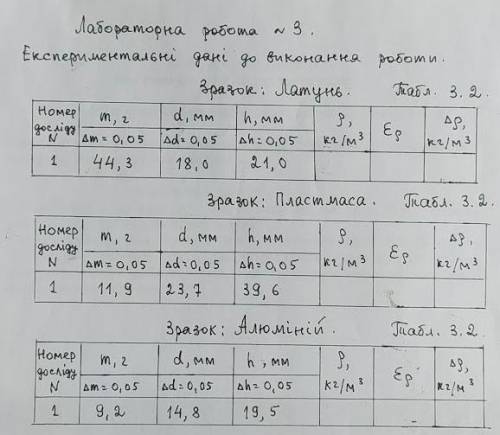 Лабораторна робота ~ 3.
Експериментальні дані до виконання роботи.
Зразок: Латунь. Табл. 3.2.
Номер досліду N | m, г | d, мм | h, мм | ρ, кг/м³ | Ερ | Δρ, кг/м³
Δm = 0,05 | Δd = 0,05 | Δh = 0,05
1 | 44,3 | 18,0 | 21,0
Зразок: Пластмаса. Табл. 3.2.
Номер досліду N | m, г | d, мм | h, мм | ρ, кг/м³ | Ερ | Δρ, кг/м³
Δm = 0,05 | Δd = 0,05 | Δh = 0,05
1 | 11,9 | 23,7 | 39,6
Зразок: Алюміній. Табл. 3.2.
Номер досліду N | m, г | d, мм | h, мм | ρ, кг/м³ | Ερ | Δρ, кг/м³
Δm = 0,05 | Δd = 0,05 | Δh = 0,05
1 | 9,2 | 14,8 | 19,5